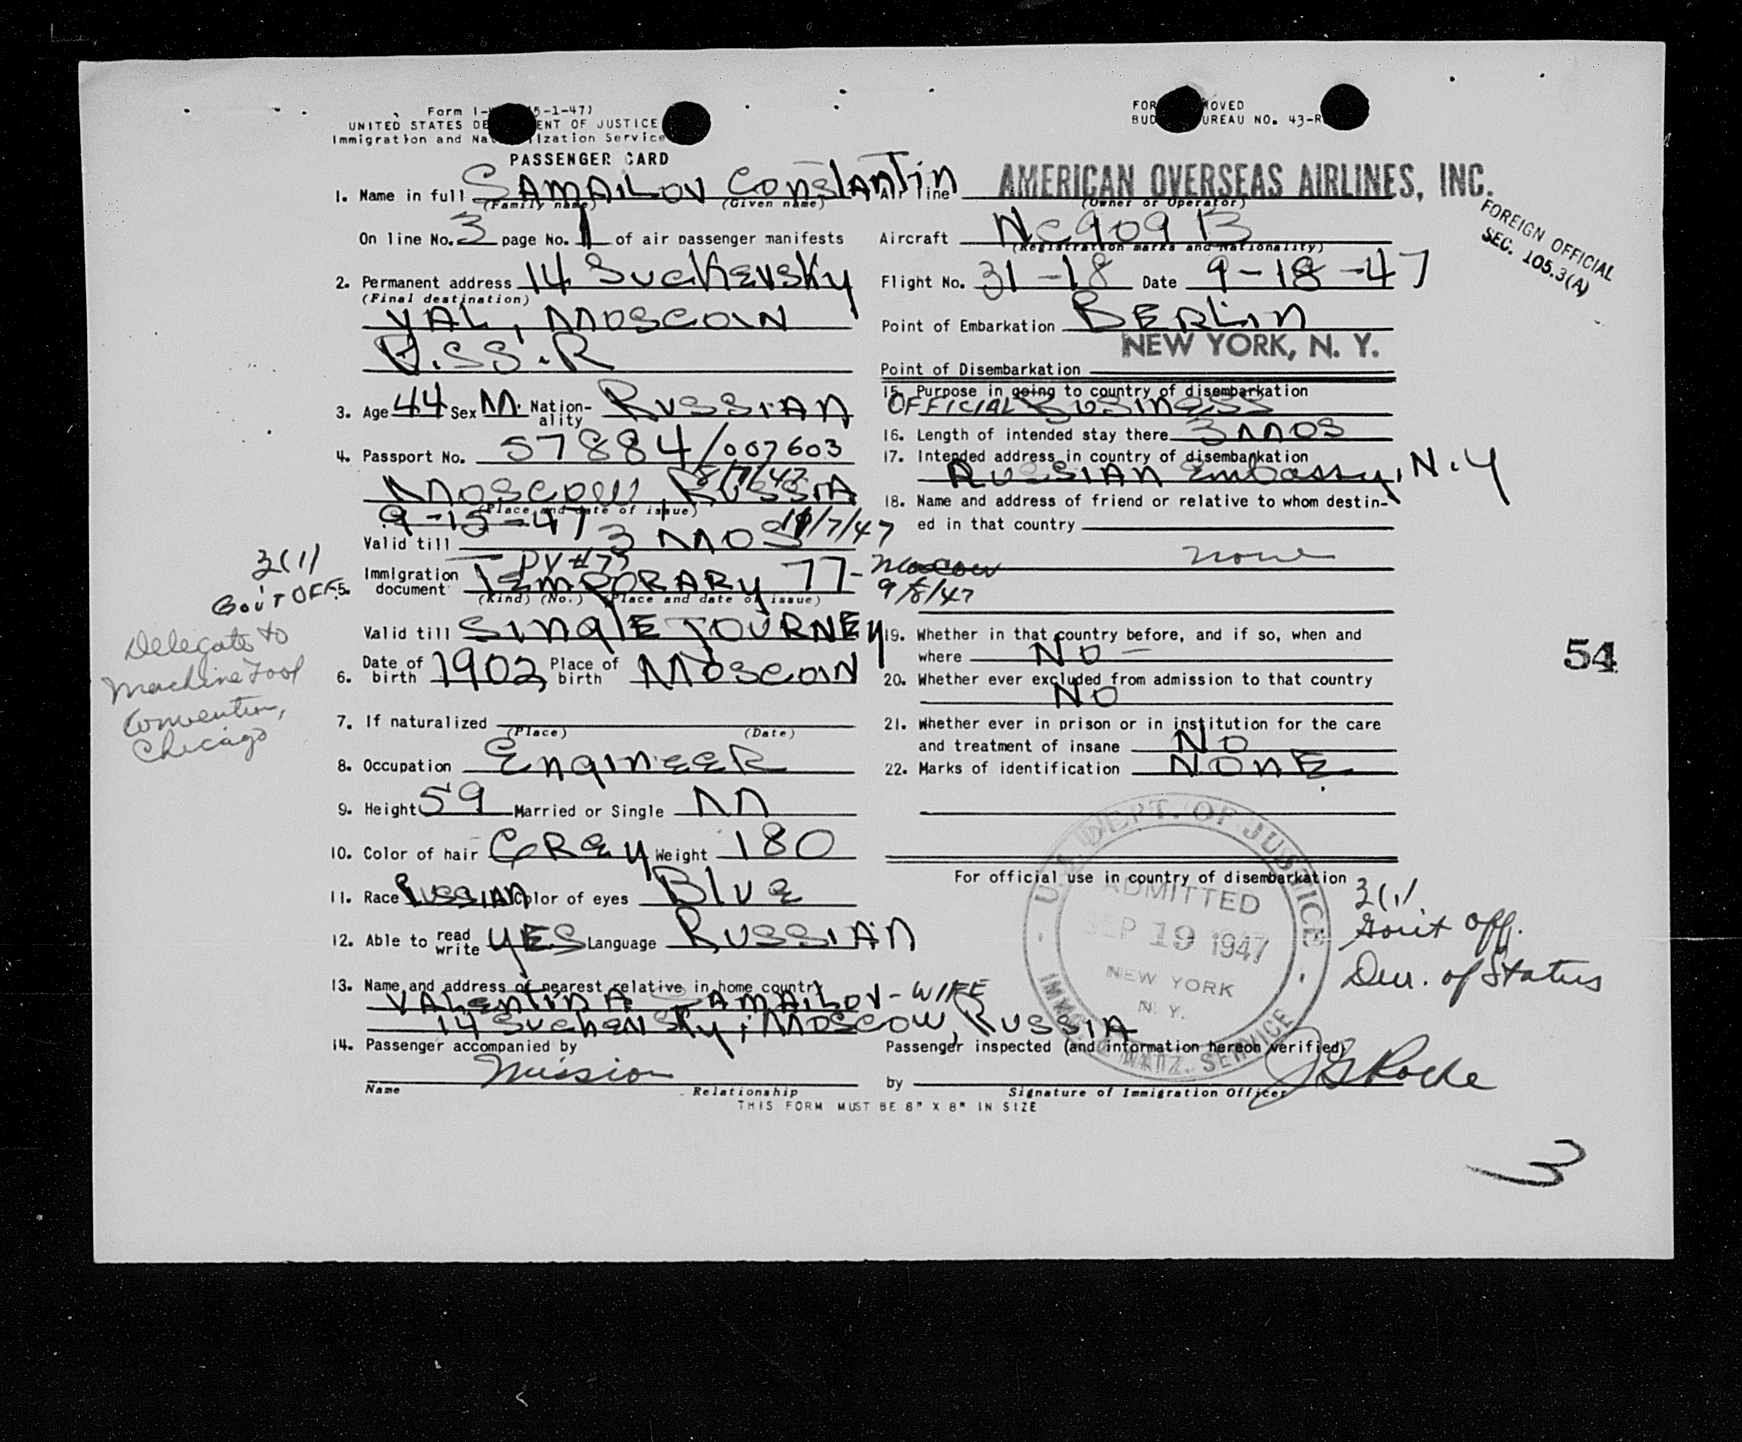 Form I- (5-1-47)
UNITED STATES DE ENT OF JUSTICE
Immigration and Nat ization Service
PASSENGER CARD
FOR OVED
BUD UREAU NO. 43-R
1. Name in full SAMAILOV Constantin
(Family name) (Given name)
Air line AMERICAN OVERSEAS AIRLINES, INC.
(Owner or Operator)
FOREIGN OFFICIAL
SEC. 105.3(A)
On line No. 3 page No. 1 of air passenger manifests
Aircraft NC 909 B
(Registration marks and Nationality)
2. Permanent address 14 Suchevsky
(Final destination)
VAL, MOSCOW
U.SS.R
Flight No. 31-18 Date 9-18-47
Point of Embarkation BERLIN
NEW YORK, N. Y.
Point of Disembarkation
3. Age 44 Sex M. Nationality RUSSIAN
4. Passport No. 57884/007603
8/7/47
MOSCOW, RUSSIA
(Place and date of issue)
9-15-47
Valid till 3 MOS 11/7/47
DV #77
5. Immigration document TEMPORARY 77- Moscow
(Kind) (No.) (Place and date of issue)
9/8/47
3(1)
Gov't OFF.
Delegate to
Machine Tool
Convention,
Chicago
Valid till SINGLE JOURNEY
6. Date of birth 1902 Place of birth MOSCOW
7. If naturalized
(Place) (Date)
8. Occupation ENGINEER
9. Height 59 Married or Single M
10. Color of hair GREY Weight 180
11. Race RUSSIAN Color of eyes Blue
12. Able to read write YES Language RUSSIAN
13. Name and address of nearest relative in home country
VALENTINA SAMAILOV - WIFE
14 Suchensky, MOSCOW, RUSSIA
14. Passenger accompanied by
Mission
Name Relationship
15. Purpose in going to country of disembarkation
OFFICIAL BUSINESS
16. Length of intended stay there 3 MOS
17. Intended address in country of disembarkation
RUSSIAN Embassy, N.Y
18. Name and address of friend or relative to whom destin-
ed in that country
none
19. Whether in that country before, and if so, when and
where NO -
20. Whether ever excluded from admission to that country
NO
21. Whether ever in prison or in institution for the care
and treatment of insane NO
22. Marks of identification NONE
54
For official use in country of disembarkation
U.S. DEPT. OF JUSTICE
ADMITTED
SEP 19 1947
NEW YORK
N. Y.
IMMIG. & NATZ. SERVICE
3(1)
Gov't Off.
Dur. of Status
Passenger inspected (and information hereon verified)
by J G Roche
Signature of Immigration Officer
THIS FORM MUST BE 6" X 8" IN SIZE
3